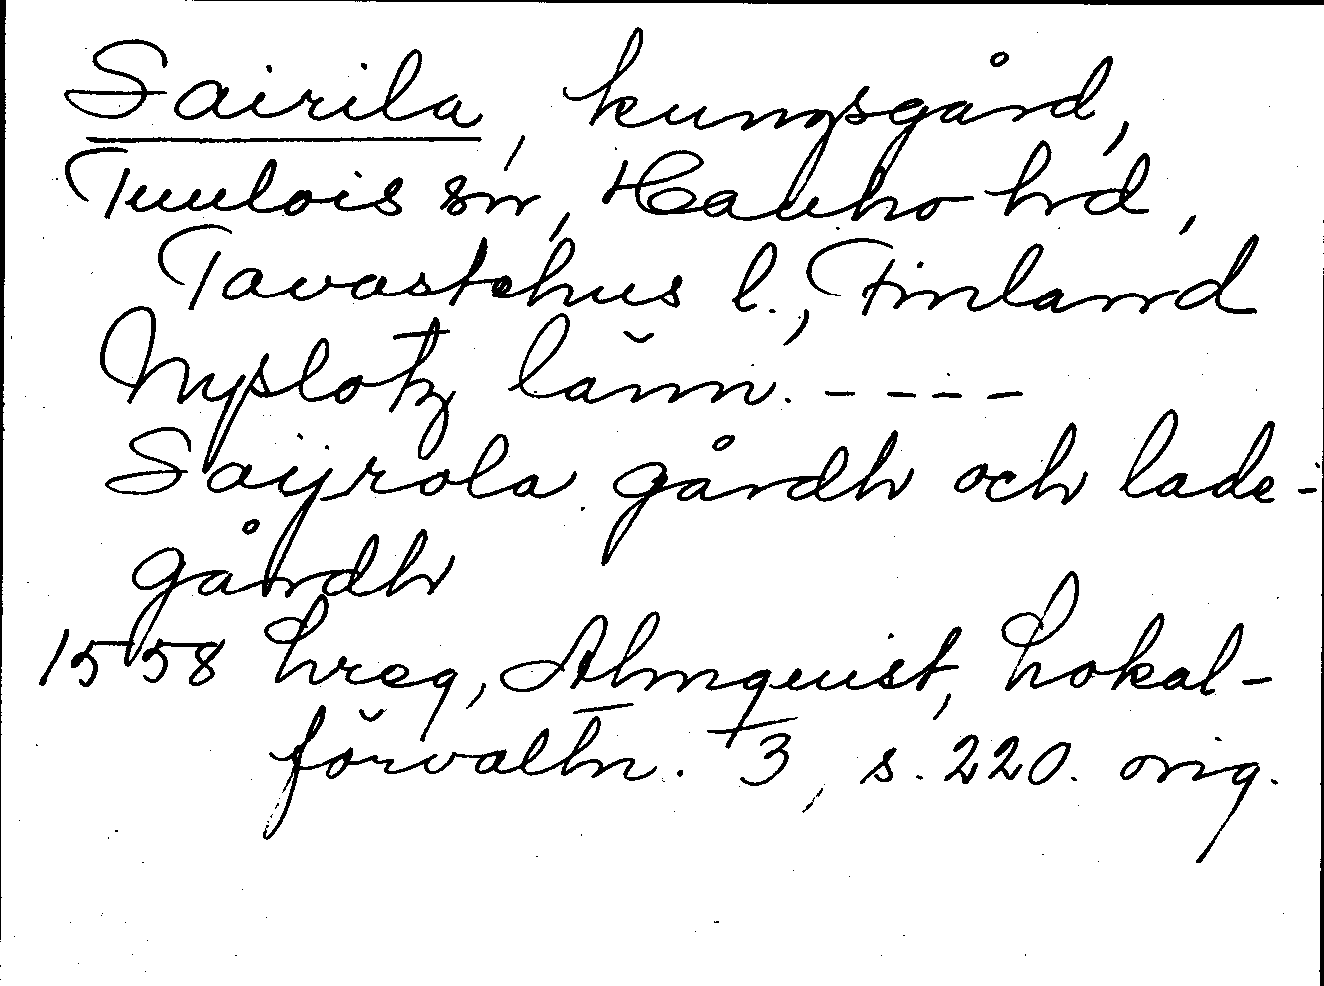 Sairila, kungsgård,
Tuulois sn, Hauho hd,
Tavastehus l., Finland
Nyslotz länn. - - - -
Saijrola gårdh och lade-
gårdh
1558 hreg, Almquist, Lokal-
förvaltn. 3, s. 220. orig.